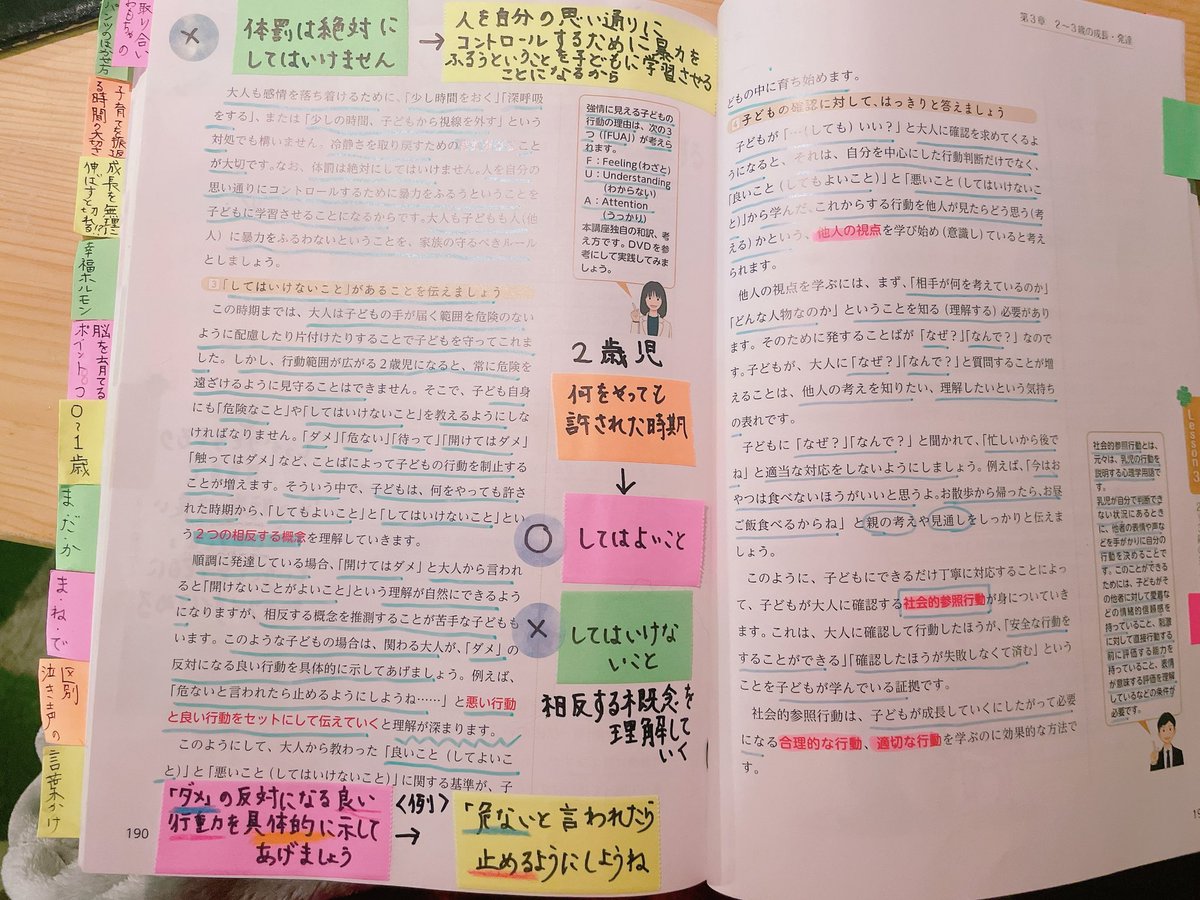 取り合い
おもちゃの
パンツのはかせ方
子育てを振返
る時間の大切さ
成長を無理に
伸ばすと切れる!!
幸福ホルモン
脳を育てる
ポイント。つ
0〜1歳
まだ・か
ま・ね・で
区別
泣き声の
言葉かけ
×
体罰は絶対に
してはいけません
→
人を自分の思い通りに
コントロールするために暴力を
ふるうということを子どもに学習させる
ことになるから
大人も感情を落ち着けるために、「少し時間をおく」「深呼吸
をする」、または「少しの時間、子どもから視線を外す」という
対処でも構いません。冷静さを取り戻すための
こと
が大切です。なお、体罰は絶対にしてはいけません。人を自分の
思い通りにコントロールするために暴力をふるうということを
子どもに学習させることになるからです。大人も子どもも人(他
人)に暴力をふるわないということを、家族の守るべきルール
としましょう。
3「してはいけないこと」があることを伝えましょう
この時期までは、大人は子どもの手が届く範囲を危険のない
ように配慮したり片付けたりすることで子どもを守ってこれま
した。しかし、行動範囲が広がる2歳児になると、常に危険を
遠ざけるように見守ることはできません。そこで、子ども自身
にも「危険なこと」や「してはいけないこと」を教えるようにしな
ければなりません。「ダメ」「危ない」「待って」「開けてはダメ」
「触ってはダメ」など、ことばによって子どもの行動を制止する
ことが増えます。そういう中で、子どもは、何をやっても許さ
れた時期から、「してもよいこと」と「してはいけないこと」とい
う2つの相反する概念を理解していきます。
順調に発達している場合、「開けてはダメ」と大人から言われ
ると「開けないことがよいこと」という理解が自然にできるよう
になりますが、相反する概念を推測することが苦手な子どももい
います。このような子どもの場合は、関わる大人が、「ダメ」の
反対になる良い行動を具体的に示してあげましょう。例えば、
「危ないと言われたら止めるようにしようね……」と悪い行動
と良い行動をセットにして伝えていくと理解が深まります。
このようにして、大人から教わった「良いこと(してよいこ
と)」と「悪いこと(してはいけないこと)」に関する基準が、子
190
「ダメ」の反対になる良い
行動を具体的に示して
あげましょう
<例>
→
「危ないと言われたら
止めるようにしようね
強情に見える子どもの
行動の理由は、次の3
つ(「FUA」)が考えら
れます。
F:Feeling(わざと)
U:Understanding
(わからない)
A:Attention
(うっかり)
本講座独自の和訳、考
え方です。DVDを参
考にして実践してみま
しょう。
2歳児
何をやっても
許された時期
↓
○
してはよいこと
×
してはいけな
いこと
相反する概念を
理解して
いく
第3章 2〜3歳の成長・発達
どもの中に育ち始めます。
4子どもの確認に対して、はっきりと答えましょう
子どもが「…(しても)いい?」と大人に確認を求めてくるよ
うになると、それは、自分を中心にした行動判断だけでなく、
「良いこと(してもよいこと)」と「悪いこと(してはいけないこ
と)」から学んだ、これからする行動を他人が見たらどう思う(考
える)かという、他人の視点を学び始め(意識し)ていると考え
られます。
他人の視点を学ぶには、まず、「相手が何を考えているのか」
「どんな人物なのか」ということを知る(理解する)必要があり
ます。そのために発することばが「なぜ?」「なんで?」なので
す。子どもが、大人に「なぜ?」「なんで?」と質問することが増
えることは、他人の考えを知りたい、理解したいという気持ち
の表れです。
子どもに「なぜ?」「なんで?」と聞かれて、「忙しいから後で
ね」と適当な対応をしないようにしましょう。例えば、「今はお
やつは食べないほうがいいと思うよ。お散歩から帰ったら、お昼
ご飯食べるからね」と親の考えや見通しをしっかりと伝えま
しょう。
このように、子どもにできるだけ丁寧に対応することによっ
て、子どもが大人に確認する社会的参照行動が身についていき
ます。これは、大人に確認して行動したほうが、「安全な行動を
することができる」「確認したほうが失敗しなくて済む」という
ことを子どもが学んでいる証拠です。
社会的参照行動は、子どもが成長していくにしたがって必要
になる合理的な行動、適切な行動を学ぶのに効果的な方法で
す。
Lesson 3
社会的参照行動とは、
元々は、乳児の行動を
説明する心理学用語で
す。
乳児が自分で判断でき
ない状況にあるときに
に、他者の表情や声な
どを手がかりに自分の
行動を決めることで
す。このことができる
ためには、子どもがそ
の他者に対して愛着な
どの情緒的信頼感を
持っていること、刺激
に対して直接行動する
前に評価する能力を
持っていること、表情
が意味する評価を理解
しているなどの条件が
必要です。
19